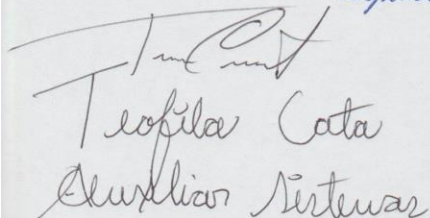 Teofila Cata
Auxiliar Sistemas